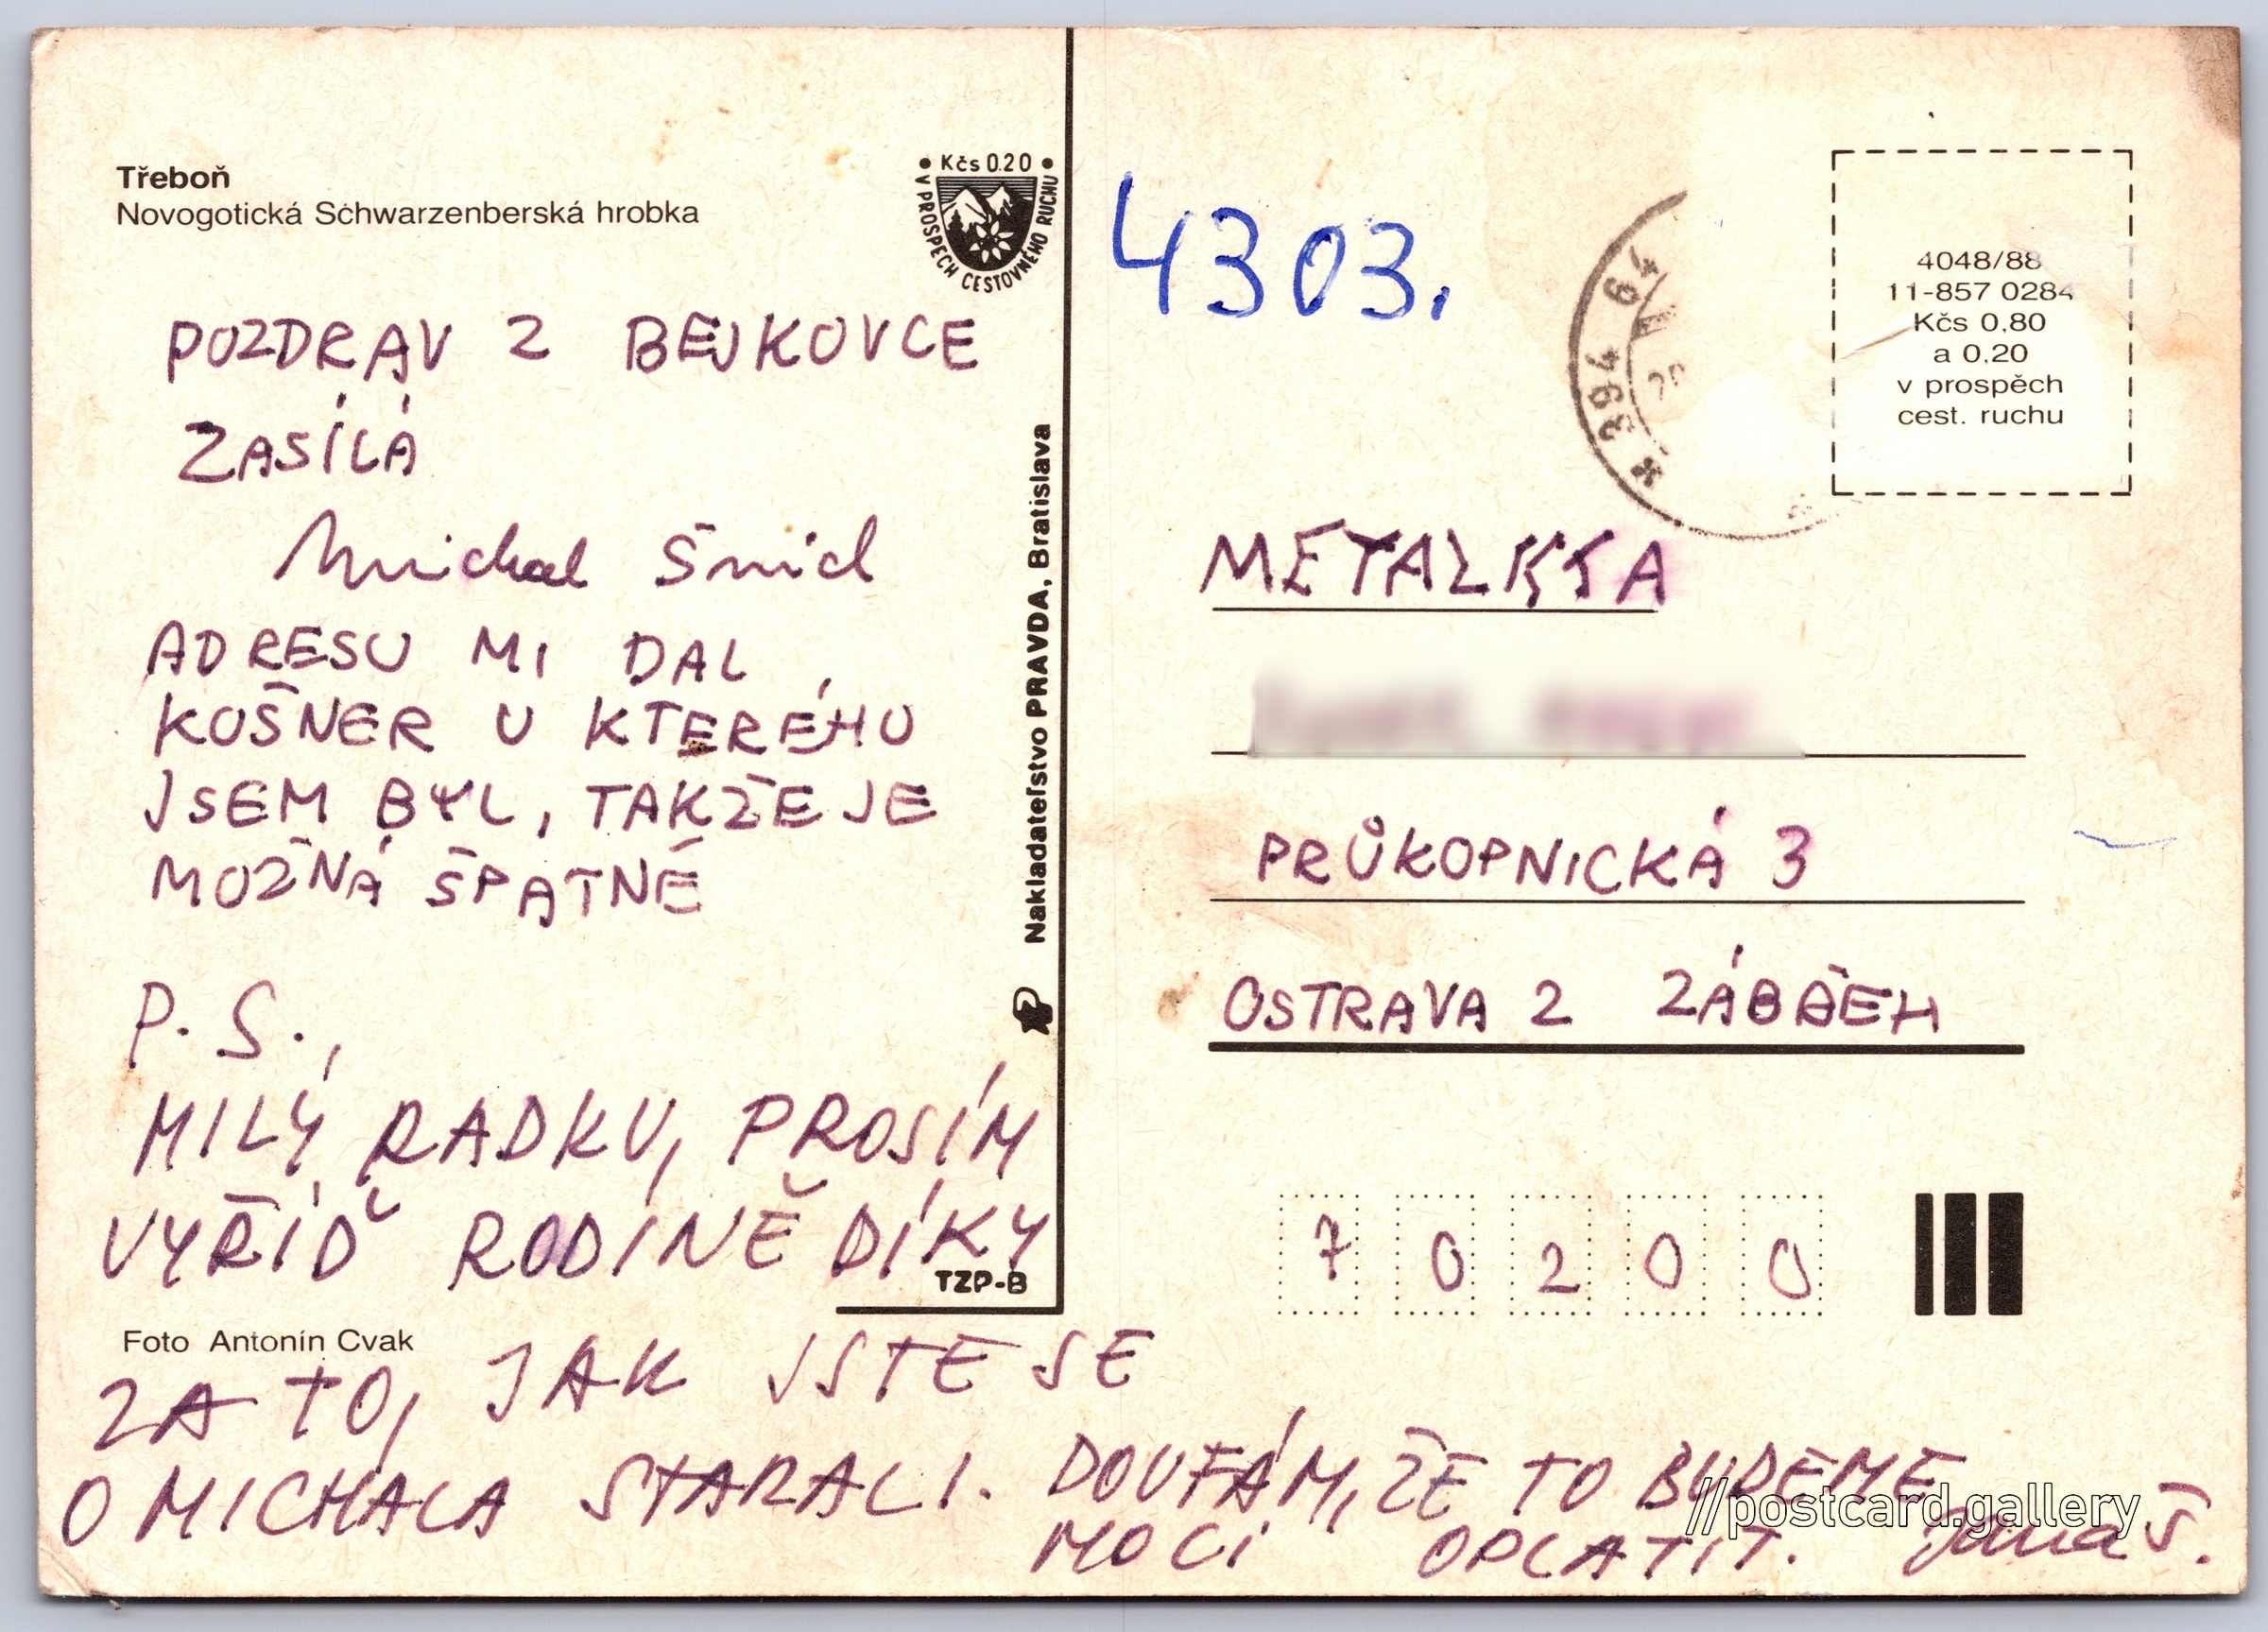 Třeboň
Novogotická Schwarzenberská hrobka
• Kčs 0.20 •
V PROSPĚCH CESTOVNÉHO RUCHU
POZDRAV Z BEJKOVCE
ZASÍLÁ
Michal Šmíd
ADRESU MI DAL
KOŠNER U KTERÉHU
JSEM BYL, TAKŽE JE
MOŽNÁ ŠPATNĚ
P.S.,
MILÝ RADKU, PROSÍM
VYŘIĎ RODINĚ DÍKY
TZP-B
Foto Antonín Cvak
ZA TO, JAK JSTE SE
O MICHALA STARALI. DOUFÁM, ŽE TO BUDEME
MOCI OPLATIT.
Nakladateľstvo PRAVDA, Bratislava
4303.
394 64
4048/88
11-857 0284
Kčs 0,80
a 0,20
v prospěch
cest. ruchu
METALKKA
PRŮKOPNICKÁ 3
OSTRAVA 2 ZÁBĚEH
70200
//postcard.gallery